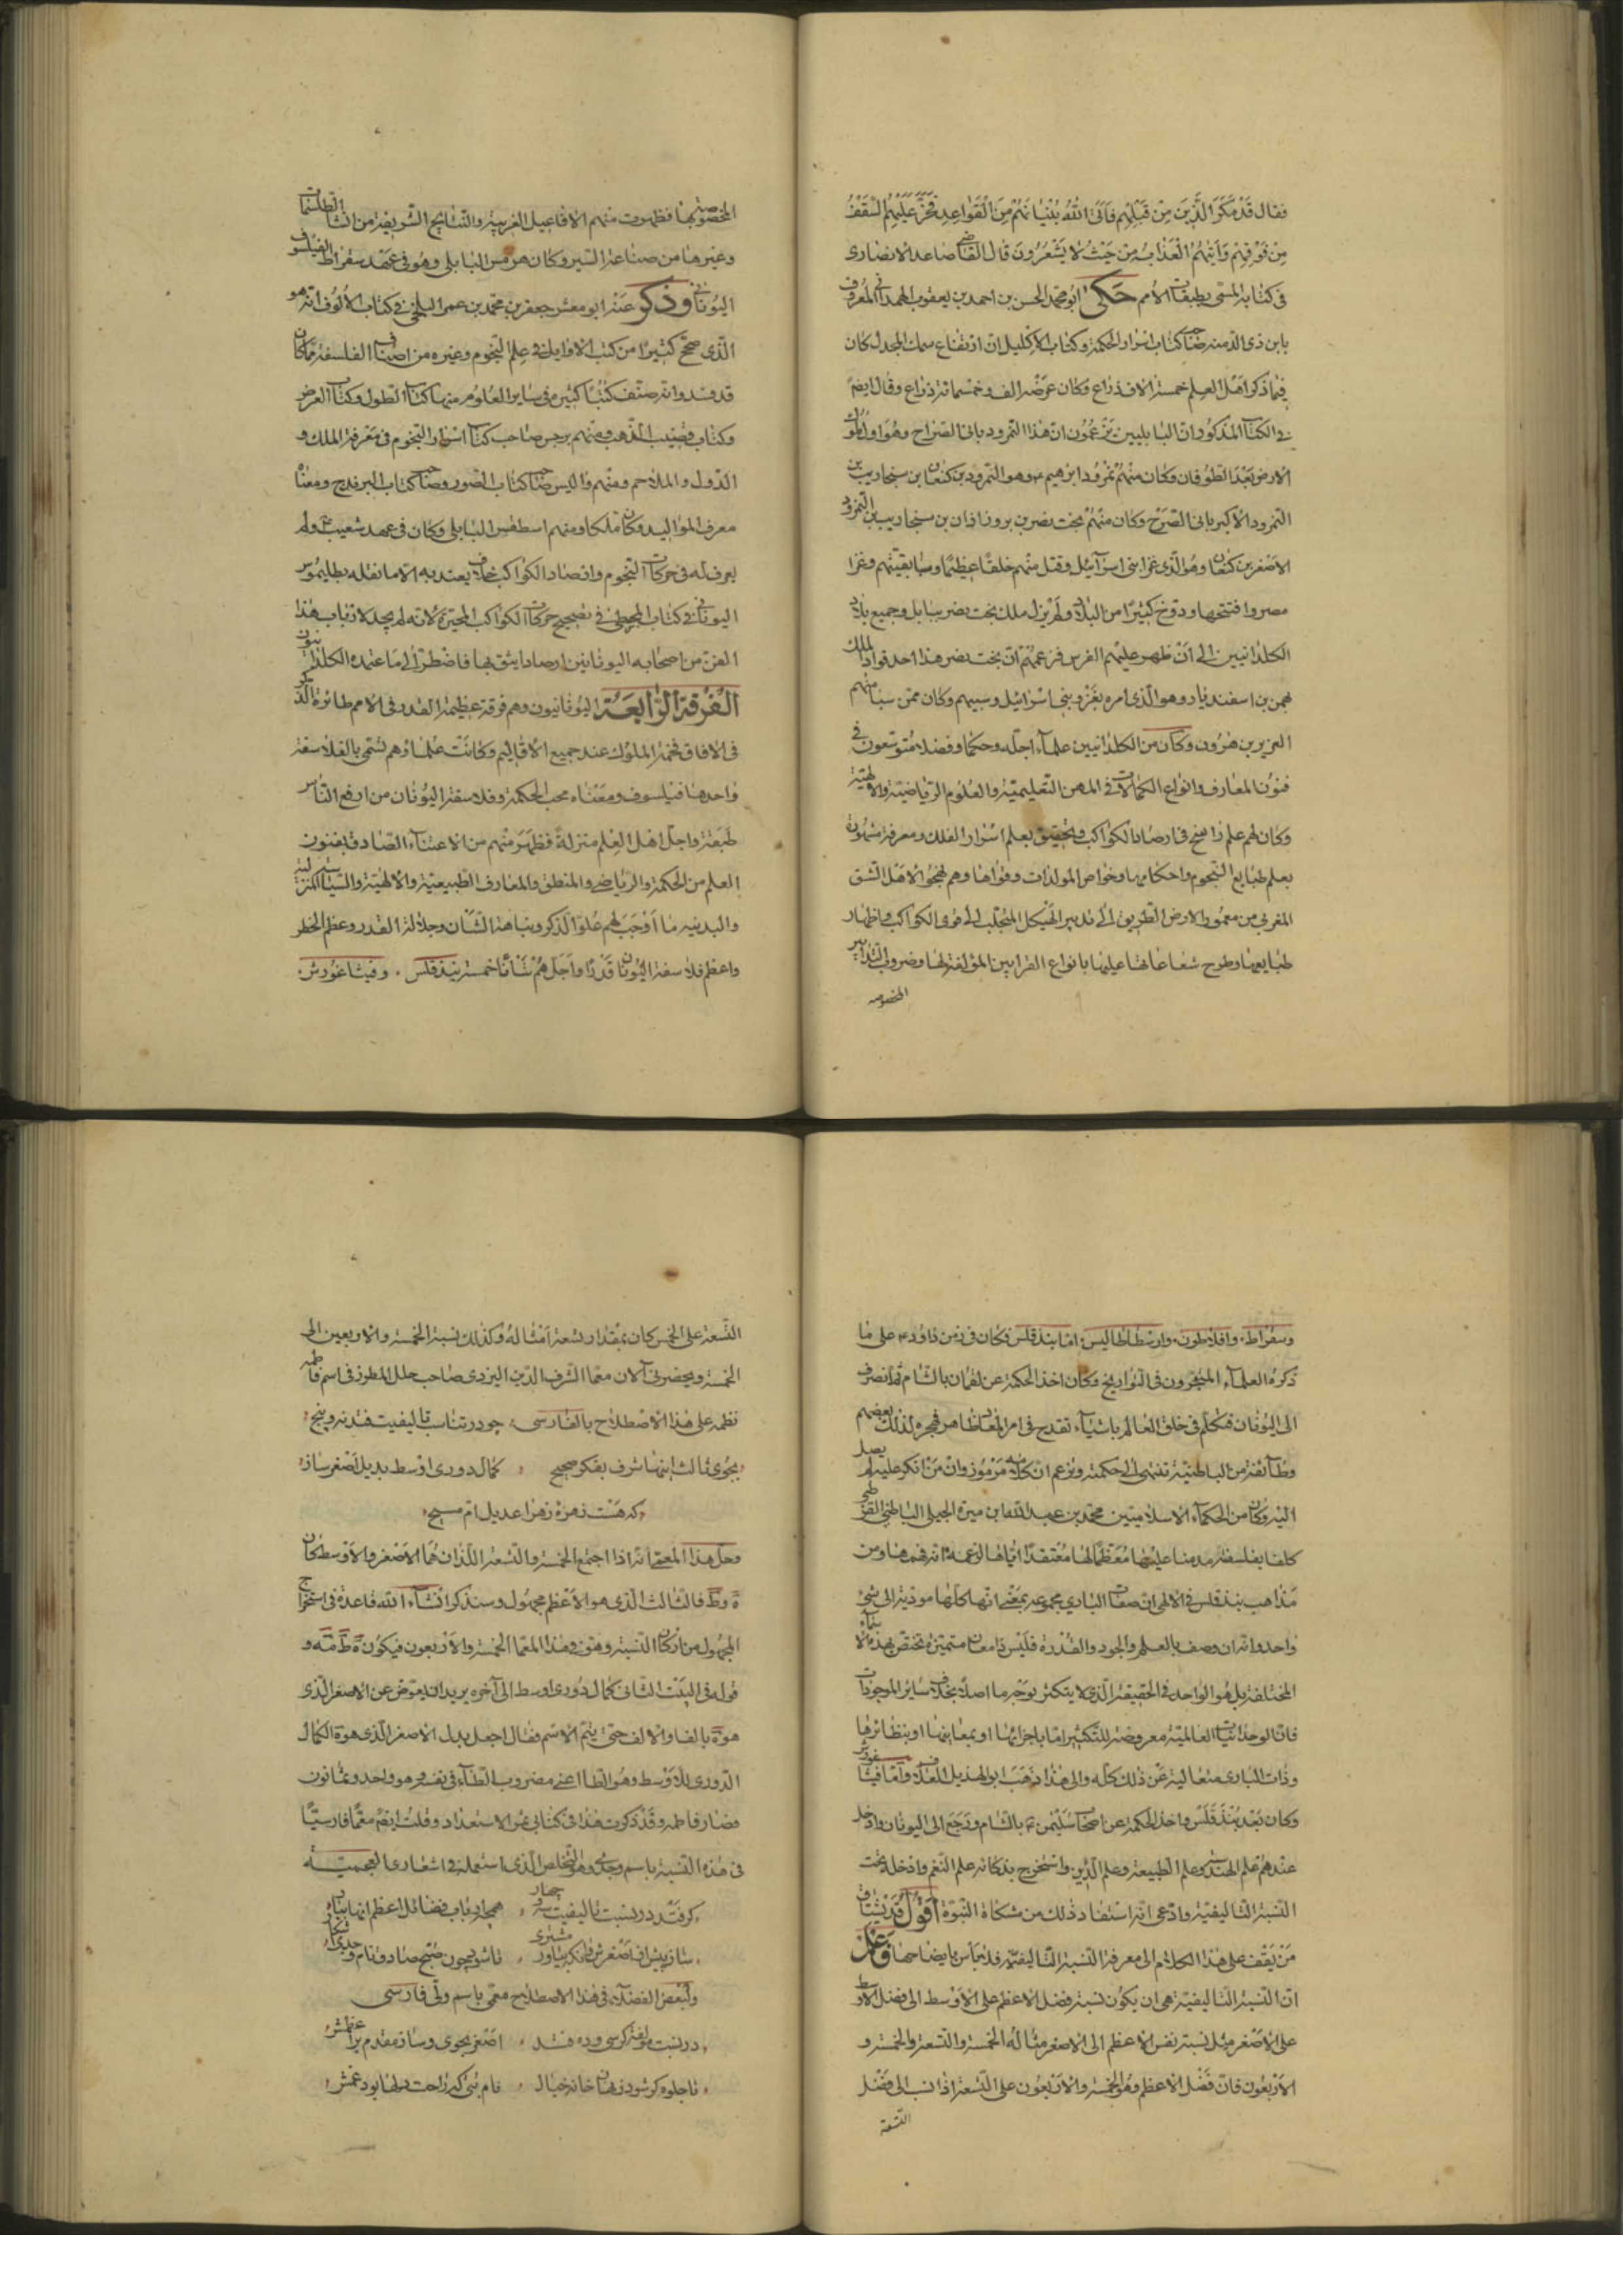 فقال قد مكر الذين من قبلهم فاتى الله بنيانهم من القواعد فخر عليهم السقف
من فوقهم واتيهم العذاب من حيث لا يشعرون قال القاضى صاعد الانصارى
فى كتابه المسمى بطبقات الامم حكى ابو محمد الحسن بن احمد بن يعقوب الهمدانى المعروف
بابن ذى الدمنه صاحب كتاب اسرار الحكمة وكتاب الاكليل ان ارتفاع سمك المجدل كان
فيما ذكر اهل العلم خمسة الاف ذراع وكان عرضه الف وخمسمائة ذراع وقال ايضا
فى الكتاب المذكور ان البابليين يزعمون ان هذا النمرود بانى الصراح وهو اول ملوك
الارض بعد الطوفان وكان منهم نمرود ابرهيم وهو النمرود بن كنعان بن سنجاريب بن
النمرود الاكبر بانى الصرح وكان منهم بخت نصر بن بروزاذان بن سنجاريب بن النمرود
الاصغر بن كنعان وهو الذى غزا بنى اسرآئيل وقتل منهم خلقا عظيما وسبا بقيتهم وغزا
مصر وافتتحها ودوخ كثيرا من البلاد ولم يزل ملك بخت نصر ببابل وجميع بلاد
الكلدانيين الى ان ظهر عليهم الفرس فزعمهم ان بخت نصر هذا احد قواد الملك
بهمن بن اسفنديار وهو الذى امره بغزو بنى اسرائيل وسبيهم وكان ممن سبا منهم
العزير بن هرون وكان من الكلدانيين علمآء اجلة وحكما وفضلا متوسعون فى
فنون المعارف وانواع الكمالات فى المهن التعليمية والعلوم الرياضية والالهية
وكان لهم علم راسخ فى ارصاد الكواكب وتحقيق بعلم اسرار الفلك ومعرفة مشهورة
بعلم طبايع النجوم واحكامها وخواص المولدات وقواها وهم نهجوا لاهل الشق
المغربى من معمور الارض الطريق الى تدبير الهيكل المنجلب الى قوى الكواكب واظهار
طبايعها وطرح شعاعاتها عليها بانواع القرابين المؤلفة لها وضروب التدابير
المخصوصه
المخصوصة بها فظهرت منهم الافاعيل الغريبة والنتايج الشريفة من انشاء الطلسمات
وغيرها من صناعة السير وكان هرمس البابلى وهو فى عهد سقراط الفيلسوف
اليونانى وذكر عنه ابو معشر جعفر بن محمد بن عمر البلخى فى كتاب الالوف انه هو
الذى صحح كثيرا من كتب الاوايل فى علم النجوم وغيره من اصناف الفلسفة مما كان
قد فسد وانه صنف كتبا كثيرة فى ساير العلوم منها كتاب الطول وكتاب العرض
وكتاب قضيب الذهب ومنهم برجس صاحب كتاب اسرار النجوم فى معرفة الملك و
الدول والملاحم ومنهم واليس صاحب كتاب الصور وصاحب كتاب البرمدج ومعناه
معرف المواليد وكان ملكا ومنهم اسطفس البابلى وكان فى عهد شعيب ولم
يعرف له فى حركات النجوم وارصاد الكواكب خلاف يعتد به الا ما نقله بطليموس
اليونانى فى كتاب المجسطى فى تصحيح حركات الكواكب المتحيرة لانه لم يجد لارباب هذا
الفن من اصحابه اليونانيين ارصادا يثق بها فاضطر الى ما عنده الكلدانيون
الفرقة الرابعة اليونانيون وهم فرقة عظيمة القدر فى الامم طائرة الذكر
فى الافاق فخمة الملوك عند جميع الاقاليم وكانت علماؤهم تسمى بالفلاسفة
واحدها فيلسوف ومعناه محب الحكمة وفلاسفة اليونان من ارفع الناس
طبقة واجل اهل العلم منزلة فظهر منهم من الاعتناء الصادق بفنون
العلم من الحكمة والرياضى والمنطق والمعارف الطبيعية والالهية والسياسة المنزلية
والبدنيه ما اوجب لهم علو الذكر ونباهة الشان وجلالة القدر وعظم الخطر
واعظم فلاسفة اليونان قدرا واجلهم شأنا خمسة بندقلس . وفيثاغورش .
وسقراط . وافلاطون . وارسطاطاليس . اما بندقلس فكان فى زمن داؤد على ما
ذكره العلمآء المتبحرون فى التواريخ وكان اخذ الحكمة عن لقمان بالشام ثم انصرف
الى اليونان فتكلم فى خلق العالم باشيآء تقدح فى امر المعاد ظاهر فهجره لذلك بعضهم
وطآئفة من الباطنية تنتهى الى حكمته وتزعم ان كلامه مرموز وان من انكر عليه لم يصل
اليه وكان من الحكمآء الاسلاميين محمد بن عبد الله بن ميرة الجبلى الباطنى القرطبى
كلفا بفلسفته مدمنا عليها معظما لها معتقدا اياها لزعمه انه فهمها ومن
مذاهب بندقلس فى الالهى ان صفات البارى مجموعة بمعنى انها كلها مودية الى شئ
واحد وانه ان وصف بالعلم والجود والقدرة فليس ذا معان متميزة تختص بهذه الاسمآء
المختلفة بل هو الواحد فى الحقيقة الذى لا يتكثر بوجه ما اصلا بخلاف ساير الموجودات
فان الوحدانيات العالمية معروضة للتكثير اما باجزائها او بمعانيها او بنظائرها
وذات البارى متعالية عن ذلك كله والى هذا ذهب ابو الهذيل العلاف واما فيثاغورش
وكان بعد بندقلس واخذ الحكمة عن اصحاب سليمن بالشام ورجع الى اليونان وادخل
عندهم علم الهندسه وعلم الطبيعة وعلم الدين واستخرج بذكائه علم النغم وادخله تحت
النسبة التاليفية وادعى انه استفاد ذلك من مشكاة النبوة اقول قد يشتاق
من يقف على هذا الكلام الى معرفة النسبة التاليفية فلا باس بايضاحها
ان النسبة التاليفية هى ان يكون نسبة فضل الاعظم على الاوسط الى فضل الاوسط
على الاصغر مثل نسبة نفس الاعظم الى الاصغر مثاله الخمسة والتسعة والخمسة و
الاربعون فان فضل الاعظم وهو الخمسة والاربعون على التسعة اذا نسب الى فضل
التسعة
التسعة على الخمس كان بمقدار تسعة امثاله وكذلك نسبة الخمسة والاربعين الى
الخمسة ويحضرنى الان معما لشرف الدين اليزدى صاحب حلل المطرز فى اسم فاطمه
نظمه على هذا الاصطلاح بالفارسى . چو در تناسب تاليفيت فتد نه وپنج
بجوى ثالث اينها شرف بفكر صحيح . كمال دورى اوسط بديل اصغر ساز
كه هست زهره زهرا عديل ام مسيح
وحل هذا المعمى انه اذا اجتمع الخمسة والتسعة اللذان هما الاصغر والاوسط كان
ه وط فالثالث الذى هو الاعظم مجهول وسنذكر انشاء الله قاعدة فى استخراج
المجهول من اركان النسبة وهو فى هذا المعما الخمسة والاربعون فيكون ه ط مه و
قوله فى البيت الثانى كمال دورى اوسط الى آخره يريد انه يعوض عن الاصغر الذى
هو ه بالفا والالف حتى يتم الاسم فقال اجعل بدل الاصغر الذى هو ه الكمال
الدورى للاوسط وهو الطا اعنى مضروب الطآء فى نفسه وهو واحد وثمانون
فصار فاطمه وقد ذكرت هذا فى كتابى الاستعداد وقلت ايضا معما فارسيا
فى هذه النسبة باسم وحدى وهو التخلص الذى استعمله فى اشعارى العجمية
كر فتد در نسبت تاليفيت سه و چهار . همچو ارباب فضائل اعظم انها بيار
ساز پيش از اصغرش وانكه بياور مشترى . تا شود چون صبح صادق نام وحدى اشكار
ولبعض الفضلآء فى هذا الاصطلاح معمى باسم ولى فارسى
در نسبت مؤلفه كر سى وده فتد . اصغر بجوى وساز مقدم بر اعظمش
تا جلوه كر شود زنهان خانه خيال . نام بتى كه راحت دلها بود غمش